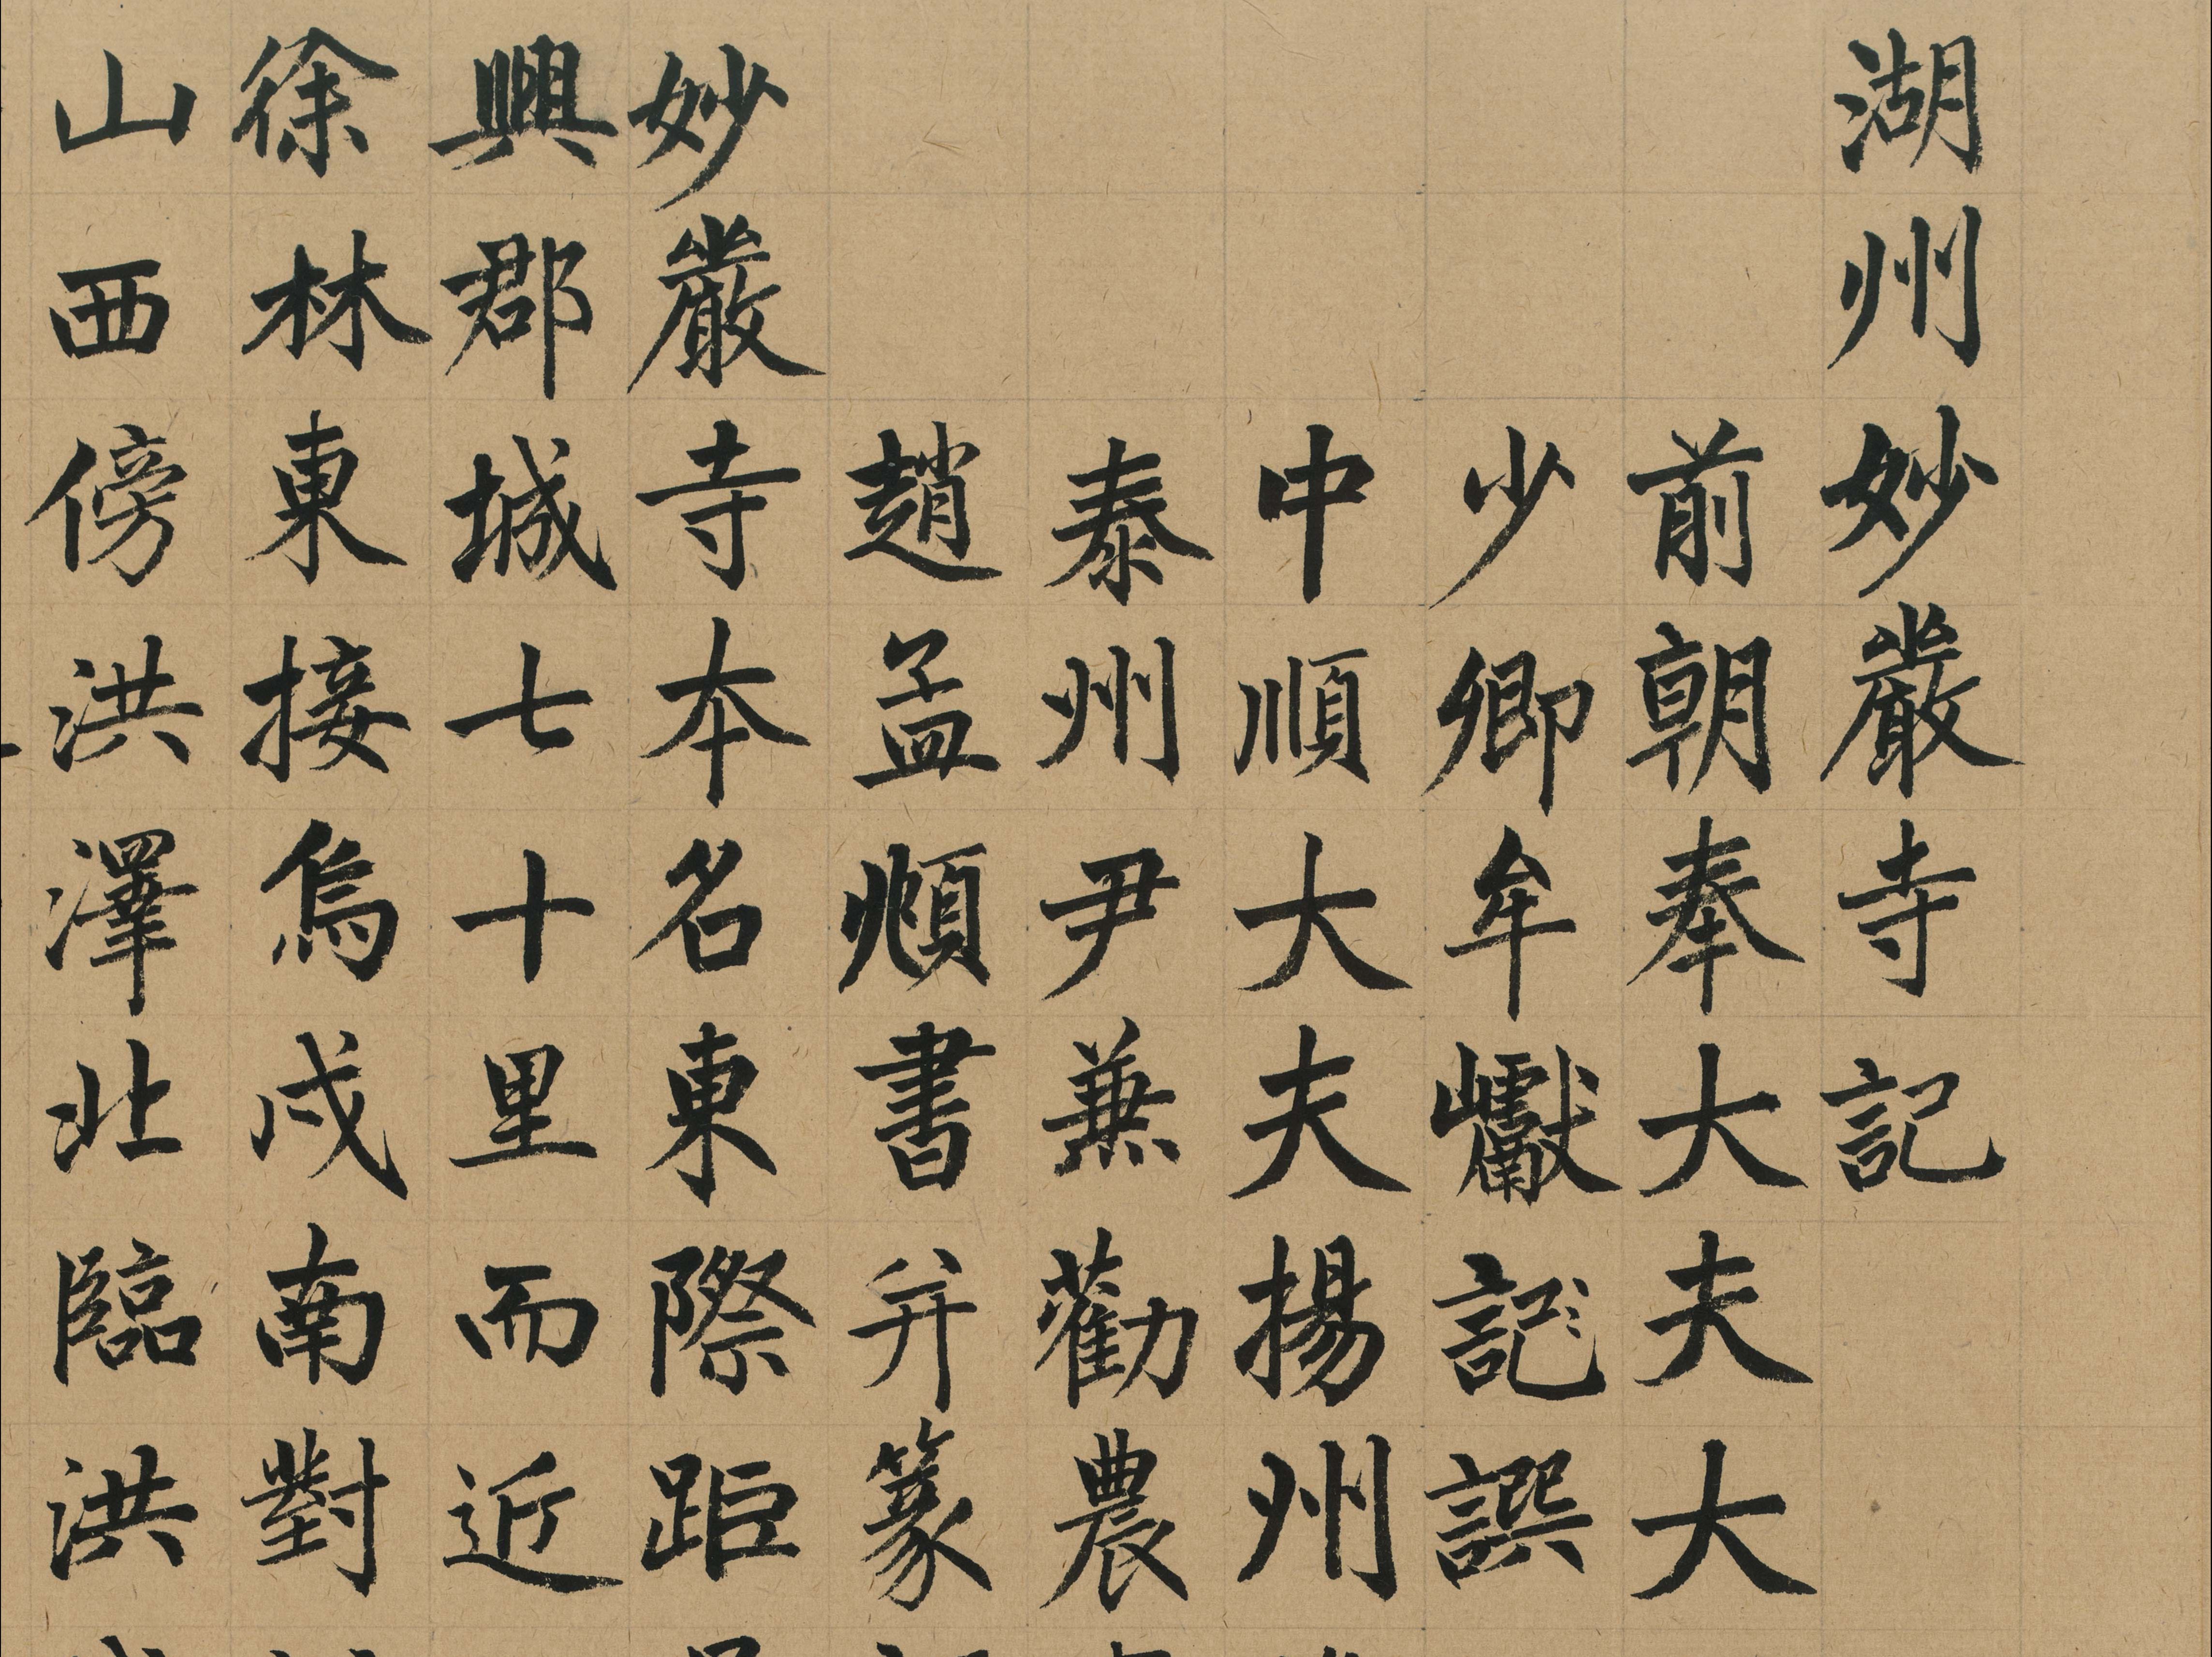 湖州妙嚴寺記
前朝奉大夫大
少卿牟巘記譔
中順大夫揚州
泰州尹兼勸農
趙孟頫書并篆
妙嚴寺本名東際距
興郡城七十里而近
徐林東接烏戍南對
山西傍洪澤北臨洪